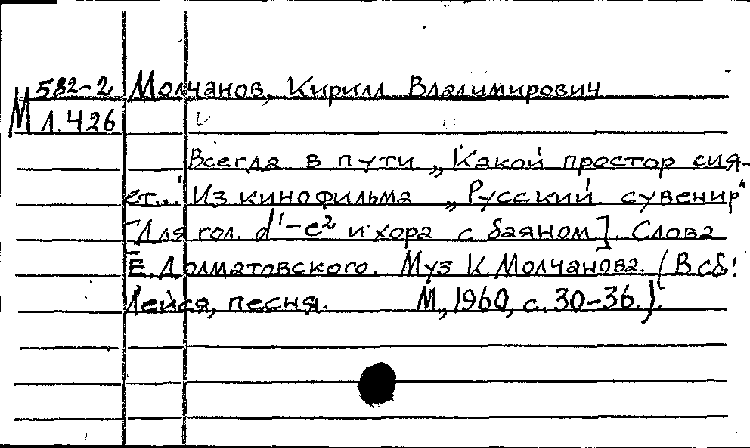 М 582-2 Молчанов, Кирилл Владимирович
Л.426
Всегда в пути „Какой простор сия-
ет..." Из кинофильма „Русский сувенир"
[Для гол. d¹-e² и хора с баяном]. Слова
Е. Долматовского. Муз К Молчанова. (В сб:
Лейся, песня. М., 1960, с. 30-36.).